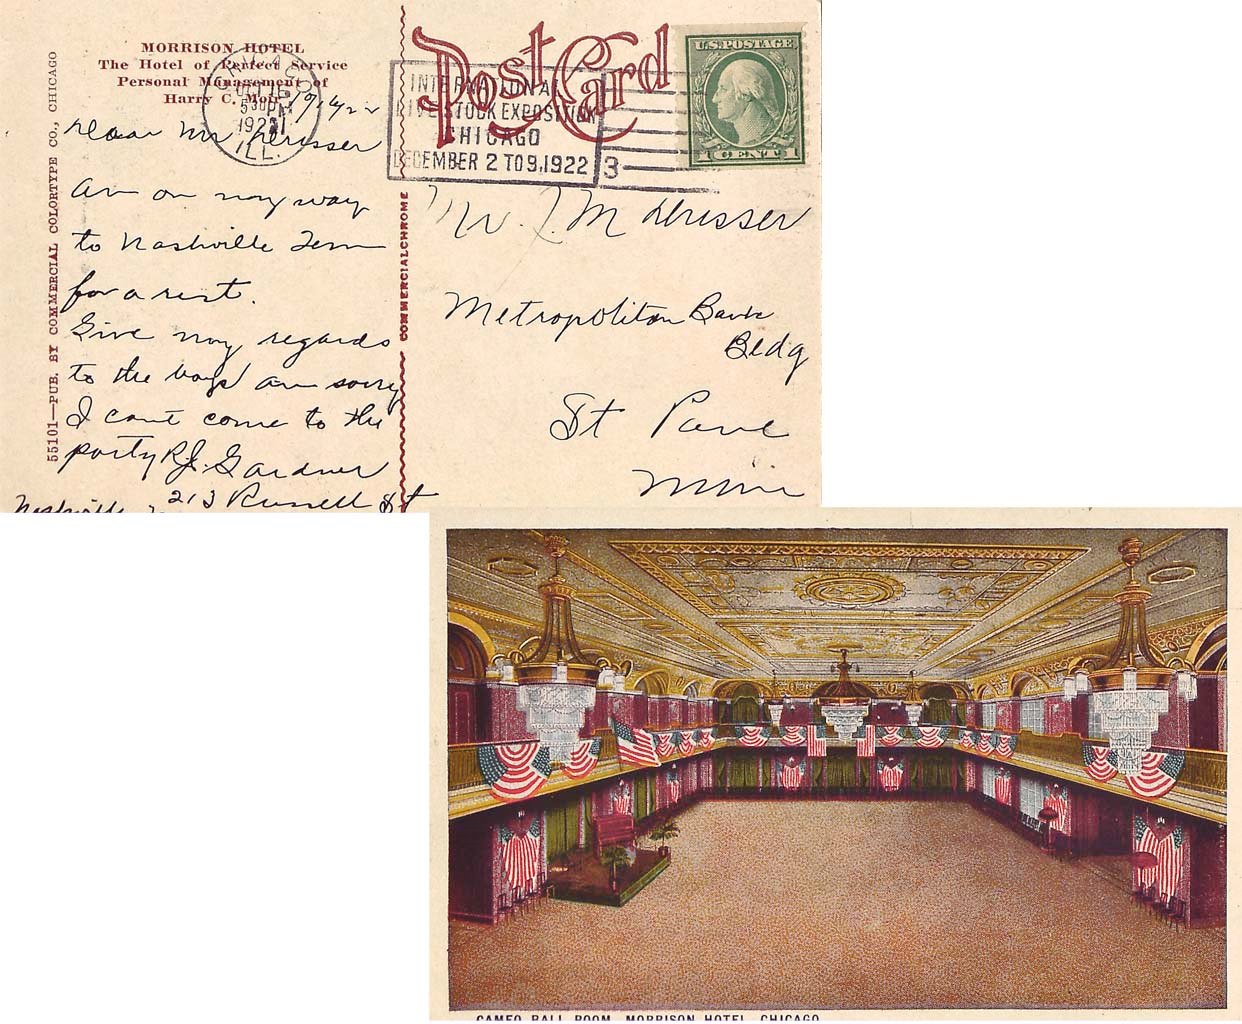 MORRISON HOTEL
The Hotel of Perfect Service
Personal Management of
Harry C. Moir
55101—PUB. BY COMMERCIAL COLORTYPE CO., CHICAGO
Post Card
COMMERCIALCHROME
CHICAGO
OCT 15
530PM
1922
ILL.
INTERNATIONAL
LIVE STOCK EXPOSITION
CHICAGO
DECEMBER 2 TO 9, 1922
3
U.S. POSTAGE
1 CENT 1
10/14/22
Dear Mr Drisser
am on my way
to Nashville Tenn
for a rest.
Give my regards
to the boys am sorry
I cant come to the
party R.J. Gardner
213 Russell St
Nashville
Mr. J. M Drisser
Metropolitan Bank
Bldg
St Paul
Minn
CAMEO BALL ROOM, MORRISON HOTEL, CHICAGO